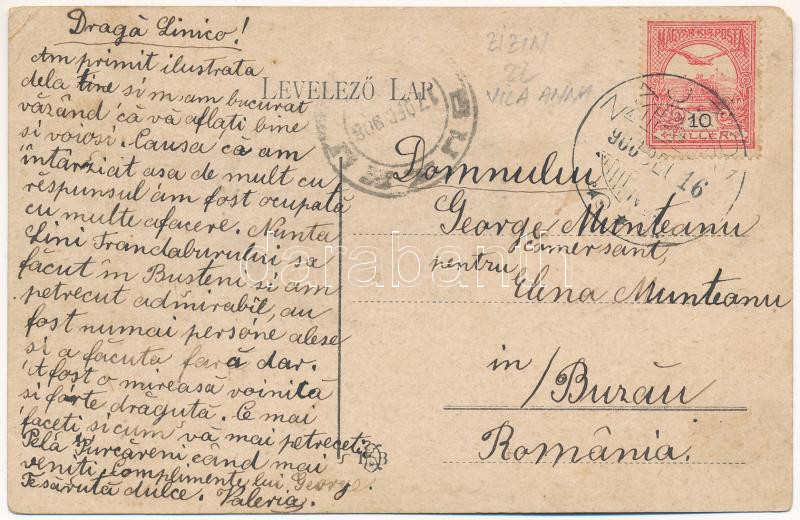 Dragă Linico!
Am primit ilustrata
dela tine si m-am bucurat
văzând că vă aflati bine
si voiosi. Causa că am
întârziat asa de mult cu
răspunsul am fost ocupată
cu multe afacere. Nunta
Lini Trandaburului sa
făcut în Busteni si am
petrecut admirabil, au
fost numai persone alese
si a făcuta fară dar.
A fost o mireasă voinită
si forte drăgută. Ce mai
faceti si cum vă mai petreceti
Pela Purcăreni când mai
veniti. Complimente lui George.
Tesărută dulce. Valeria.
LEVELEZŐ LAP
ZIZIN
22
VILA ANNA
17 DEC 908
BUZEU
MAGYAR KIR. POSTA
10
FILLER
16
Domnului
George Munteanu
Comersant,
pentru
Elena Munteanu
in
Buzău
România.
darabanth